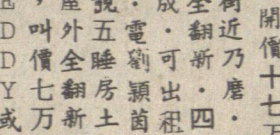 開價十
街近乃磨．
全翻新．四．
成．可出租
電劉穎茵
號五睡房土
座外全翻新
，叫價七万
EDDY或